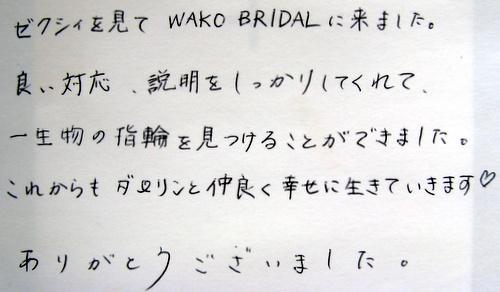 ゼクシィを見て WAKO BRIDALに来ました。
良い対応、説明をしっかりしてくれて、
一生物の指輪を見つけることができました。
これからもダーリンと仲良く幸せに生きていきます♡
ありがとうございました。